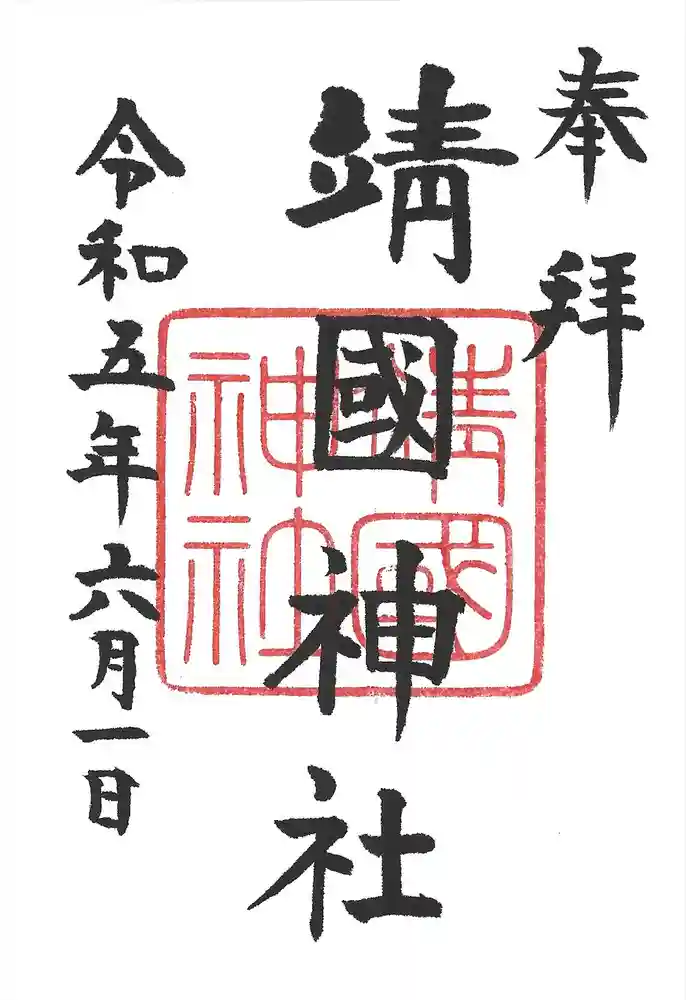 奉拝
靖國神社
令和五年六月一日
靖國
神社